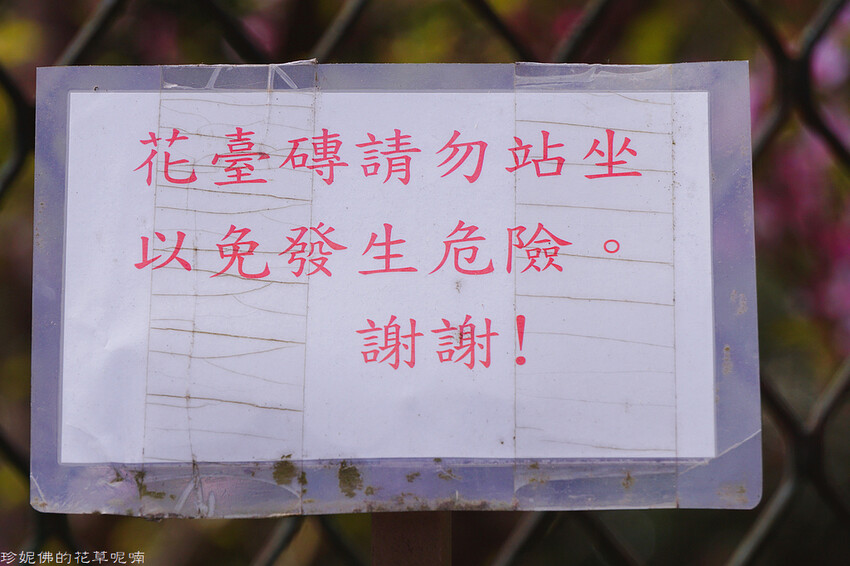 花臺磚請勿站坐
以免發生危險。
謝謝！
珍妮佛的花草呢喃